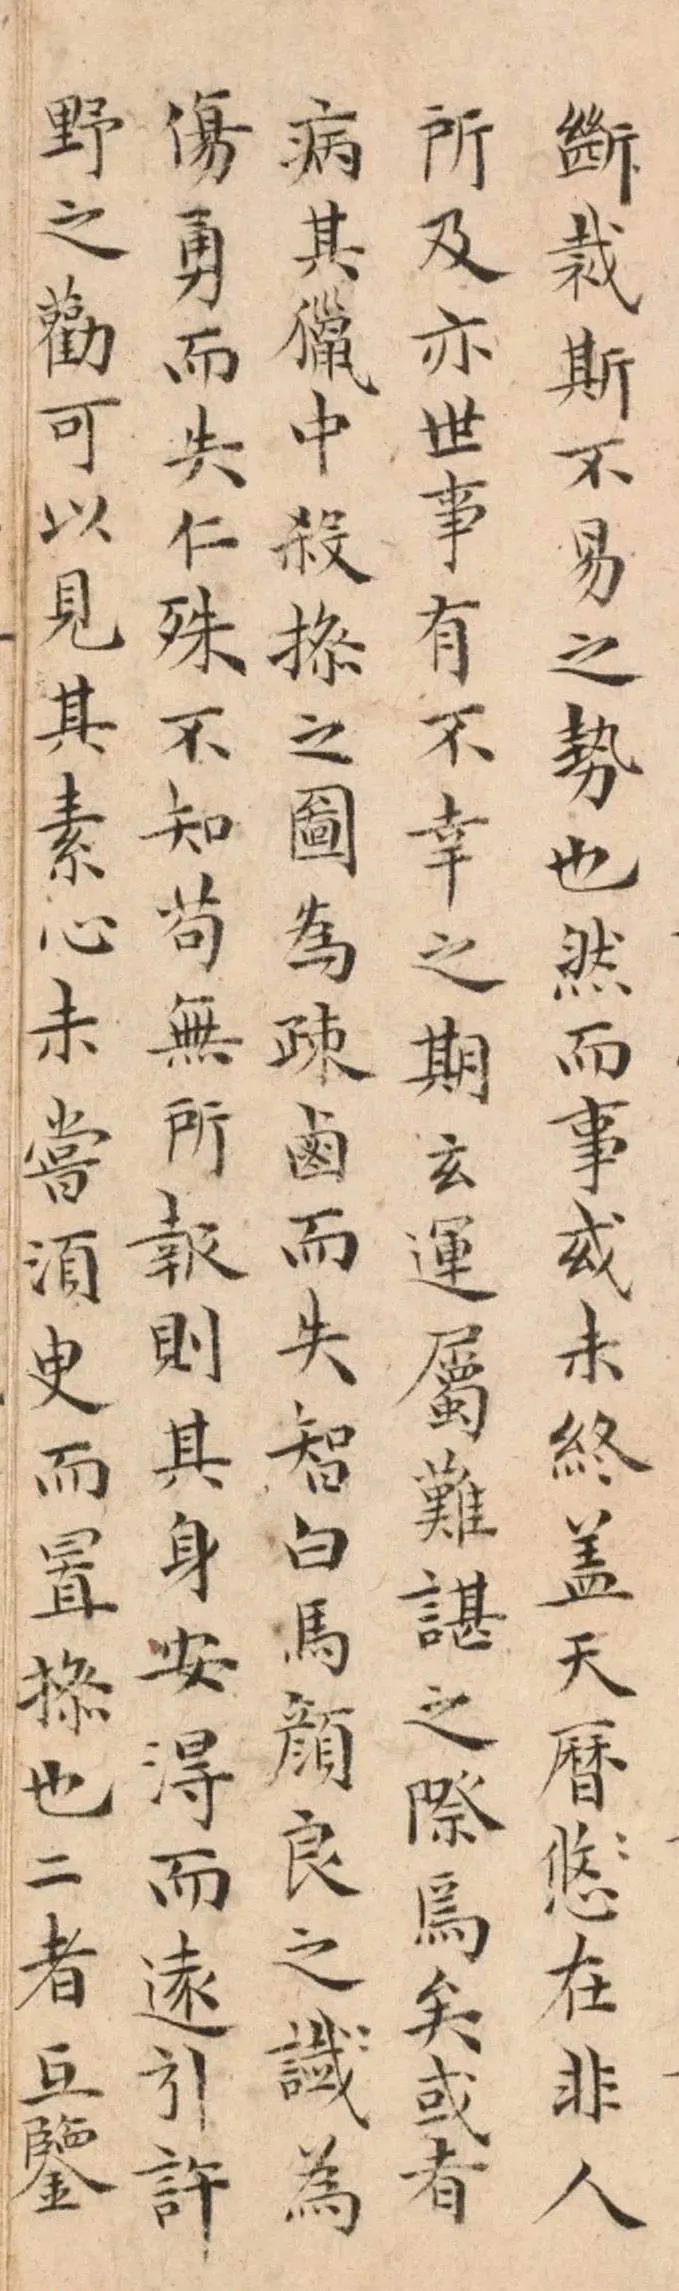 斷裁斯不易之勢也然而事或未終盖天曆悠〻在非人
所及亦世事有不幸之期玄運屬難諶之際焉矣或者
病其獵中殺操之圖為疎鹵而失智白馬顔良之為
傷勇而失仁殊不知苟無所報則其身安得而遠引許
野之勸可以見其素心未嘗湏臾而置操也二者互鑒